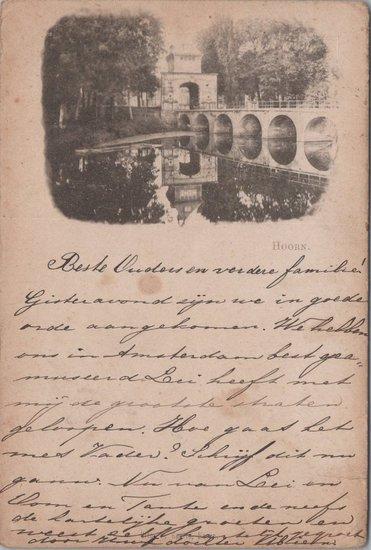 HOORN.
Beste Ouders en verdere familie!
Gisteravond zijn we in goede
orde aangekomen. We hebben
ons in Amsterdam best gea-
museerd Lei heeft met
mij de grootste straten
geloopen. Hoe gaat het
met Vader? Schijf dit nu
gauw. Nu van Lei en
Oom en Tante en de neefs
de hartelijke groeten en
meest
door